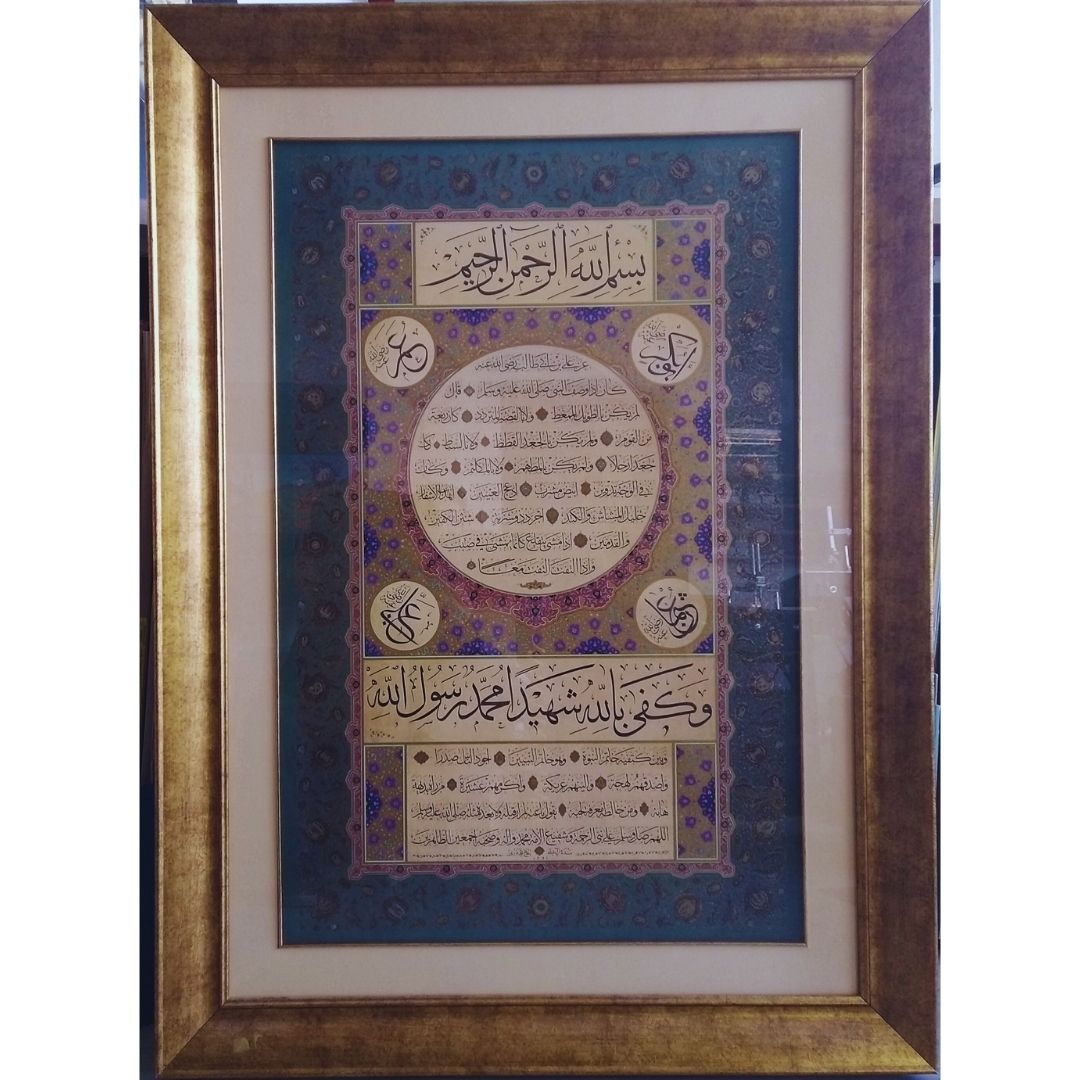 بسم الله الرحمن الرحيم
عمر رضي الله عنه
عن علي بن ابي طالب رضي الله عنه
كان اذا وصف النبي صلى الله عليه وسلم قال
لم يكن بالطويل الممغط ولا بالقصير المتردد كان ربعة
من القوم ولم يكن بالجعد القطط ولا بالسبط كان
جعدا رجلا ولم يكن بالمطهم ولا بالمكلثم وكان
في الوجه تدوير ابيض مشرب ادعج العينين اهدب الاشفار
جليل المشاش والكتد اجرد ذو مسربة شثن الكفين
والقدمين اذا مشى يتقلع كانما يمشي في صبب
واذا التفت التفت معا
علي
عثمان رضي الله عنه
وكفى بالله شهيدا محمد رسول الله
وبين كتفيه خاتم النبوة وهو خاتم النبيين اجود الناس صدرا
واصدقهم لهجة والينهم عريكة واكرمهم عشيرة من رآه بديهة
هابه ومن خالطه معرفة احبه يقول ناعته لم ار قبله ولا بعده مثله صلى الله عليه وسلم
اللهم صل وسلم على نبي الرحمة وشفيع الامة محمد وآله وصحبه اجمعين الطاهرين